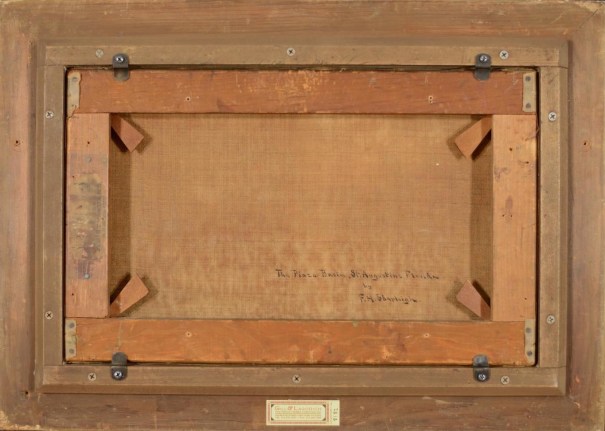 The Plaza Basin, St. Augustine Florida
by
F. H. Shapleigh